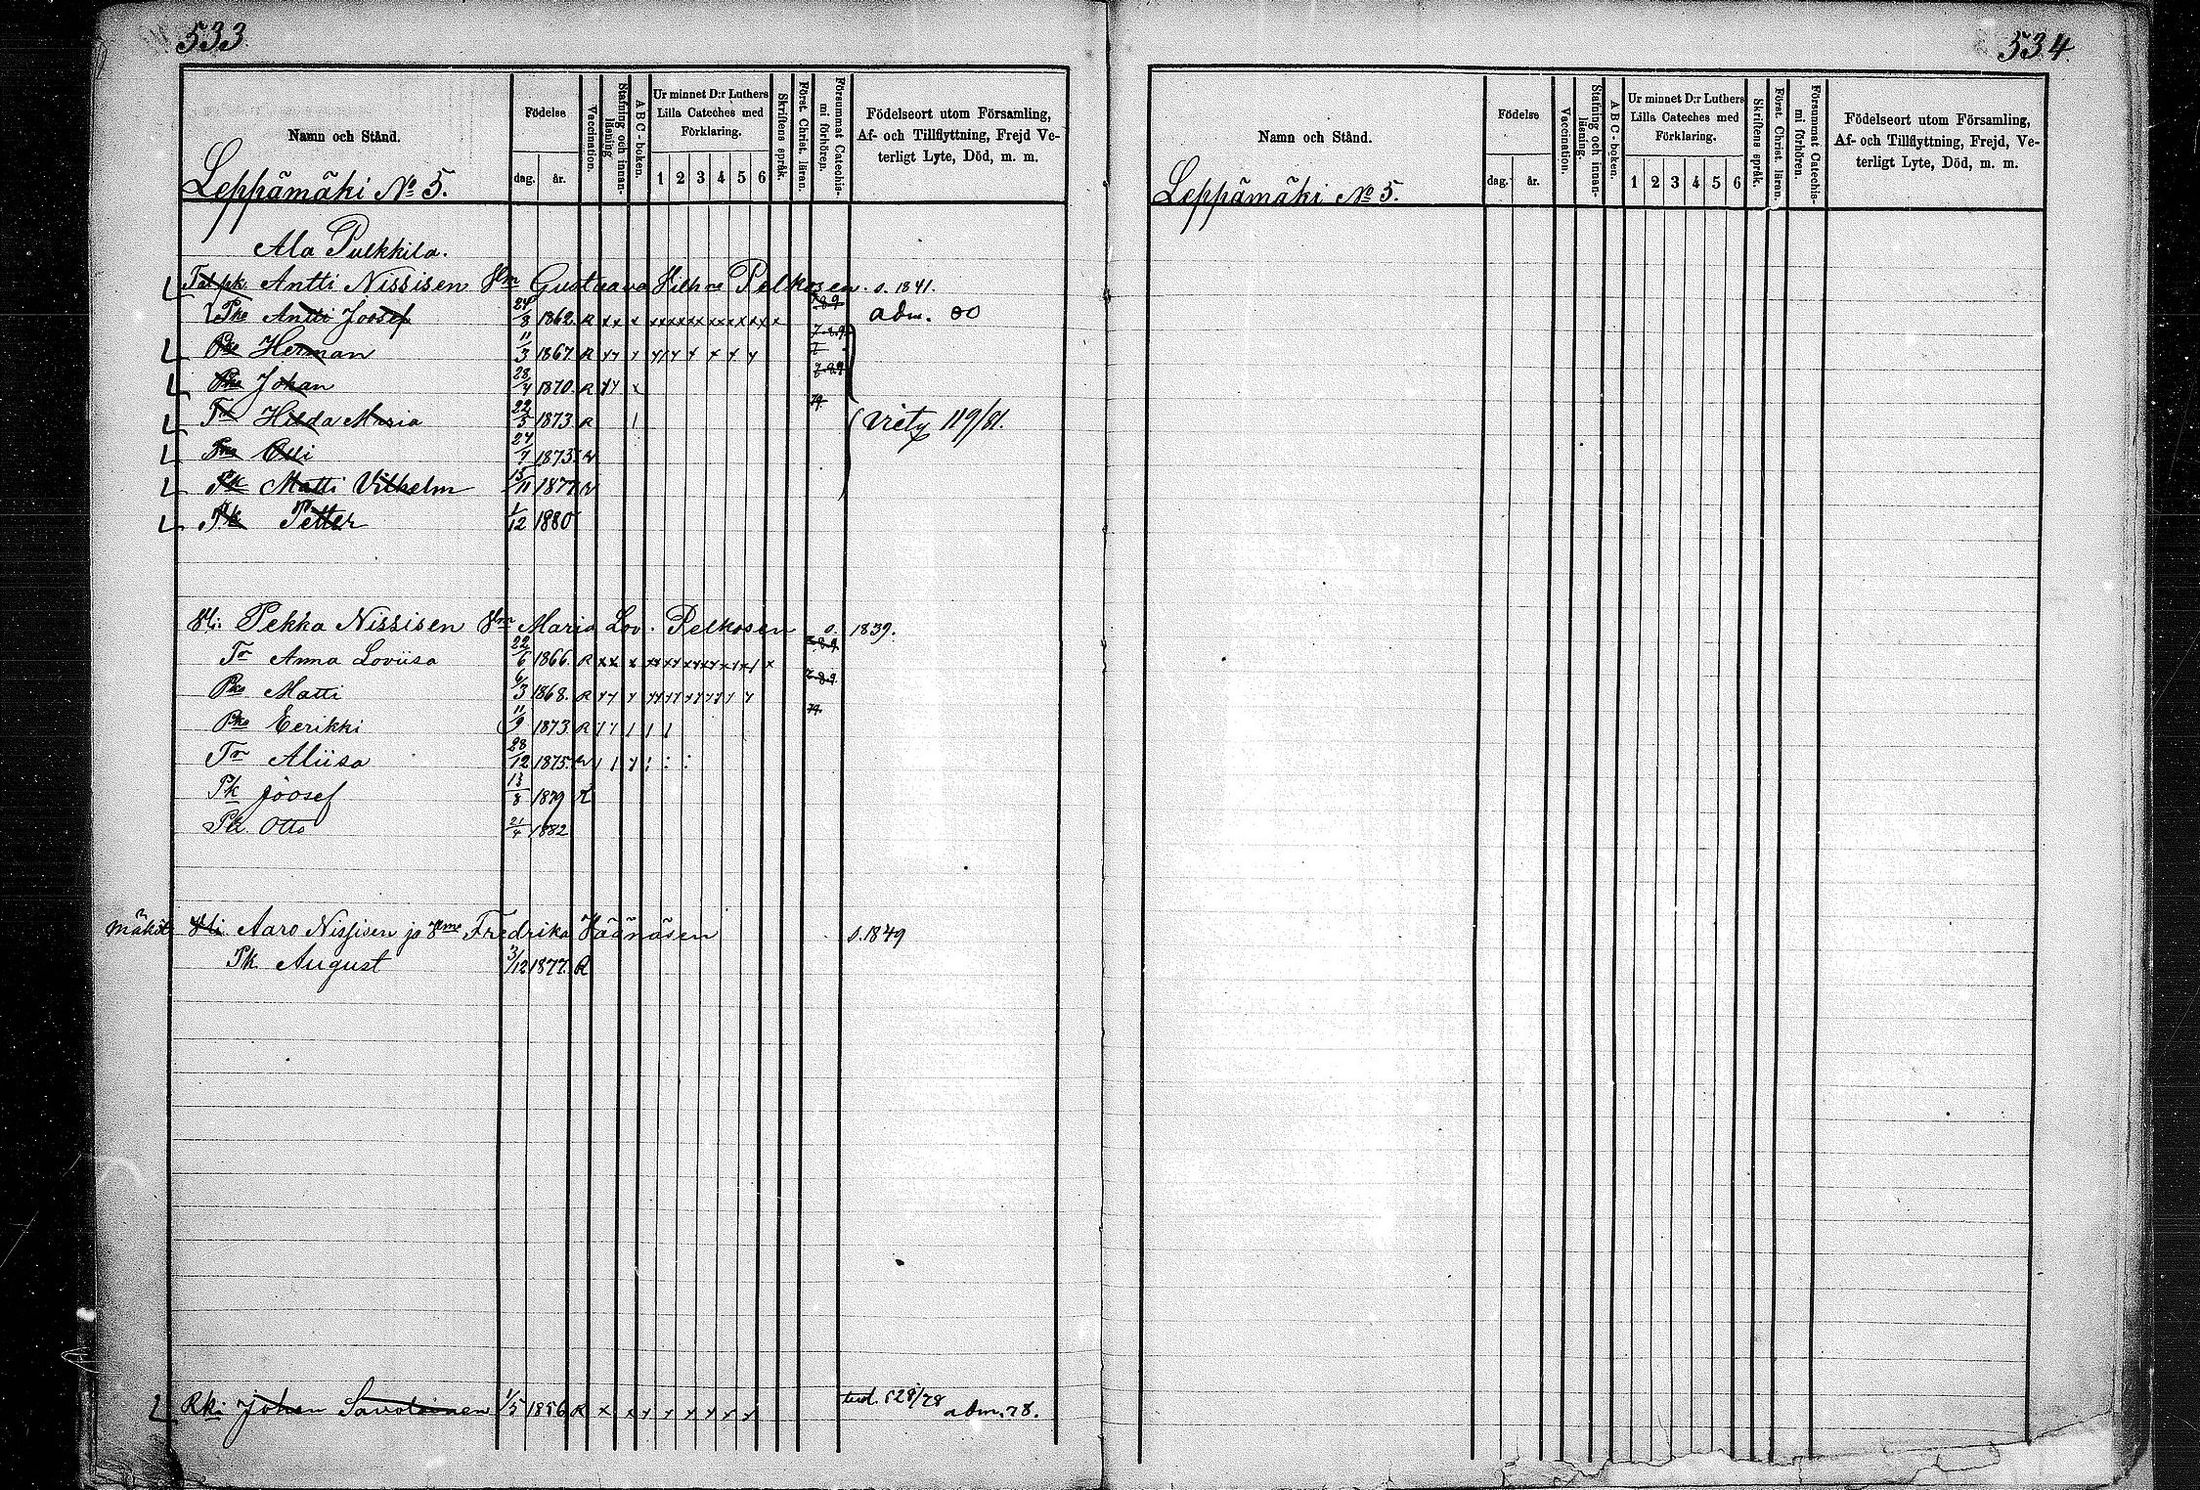 533.
Namn och Stånd.
Födelse
dag. år.
Vaccination.
Stafning och innanläsning
ABC-boken.
Ur minnet D:r Luthers
Lilla Cateches med
Förklaring.
1 2 3 4 5 6
Skriftens språk.
Först. Christ. läran.
Försummat Catechismi förhören.
Födelseort utom Församling,
Af- och Tillflyttning, Frejd Ve-
terligt Lyte, Död, m. m.
Leppämäki No 5.
Ala Pulkkila.
Antti Nissisen Vm Gustaava Pelkosen s. 1841.
Pka Antti Joosef 24/8 1862. R adm. 80
Pka Herman 11/3 1867. R
Pka Johan 28/4 1870. R
Tr Hilda Maria 22/5 1873. R Viety 119/81.
Pka Olli 24/7 1873.
Pk Matti Vilhelm 15/11 1877.
Pk Petter 1/12 1880
Vli Pekka Nissisen Vm Maria Lov. Pelkosen s. 1839.
Tr Anna Loviisa 22/6 1866. R
Pka Matti 6/3 1868. R
Pka Eerikki 11/9 1873 R
Tr Aliisa 28/12 1875.
Pk Joosef 13/8 1879 R
Pk Otto 21/4 1882
Mäkit. Vli Aaro Nissisen ja Vmo Fredrika Väänäsen s. 1849
Pk August 3/12 1877. R
Rki Johan Savolainen 1/5 1856 R tuol. 528/78 adm. 78.
534.
Namn och Stånd.
Födelse
dag. år.
Vaccination.
Stafning och innanläsning.
ABC-boken.
Ur minnet D:r Luthers
Lilla Cateches med
Förklaring.
1 2 3 4 5 6
Skriftens språk.
Först. Christ. läran.
Försummat Catechismi förhören.
Födelseort utom Församling,
Af- och Tillflyttning, Frejd, Ve-
terligt Lyte, Död, m. m.
Leppämäki No 5.